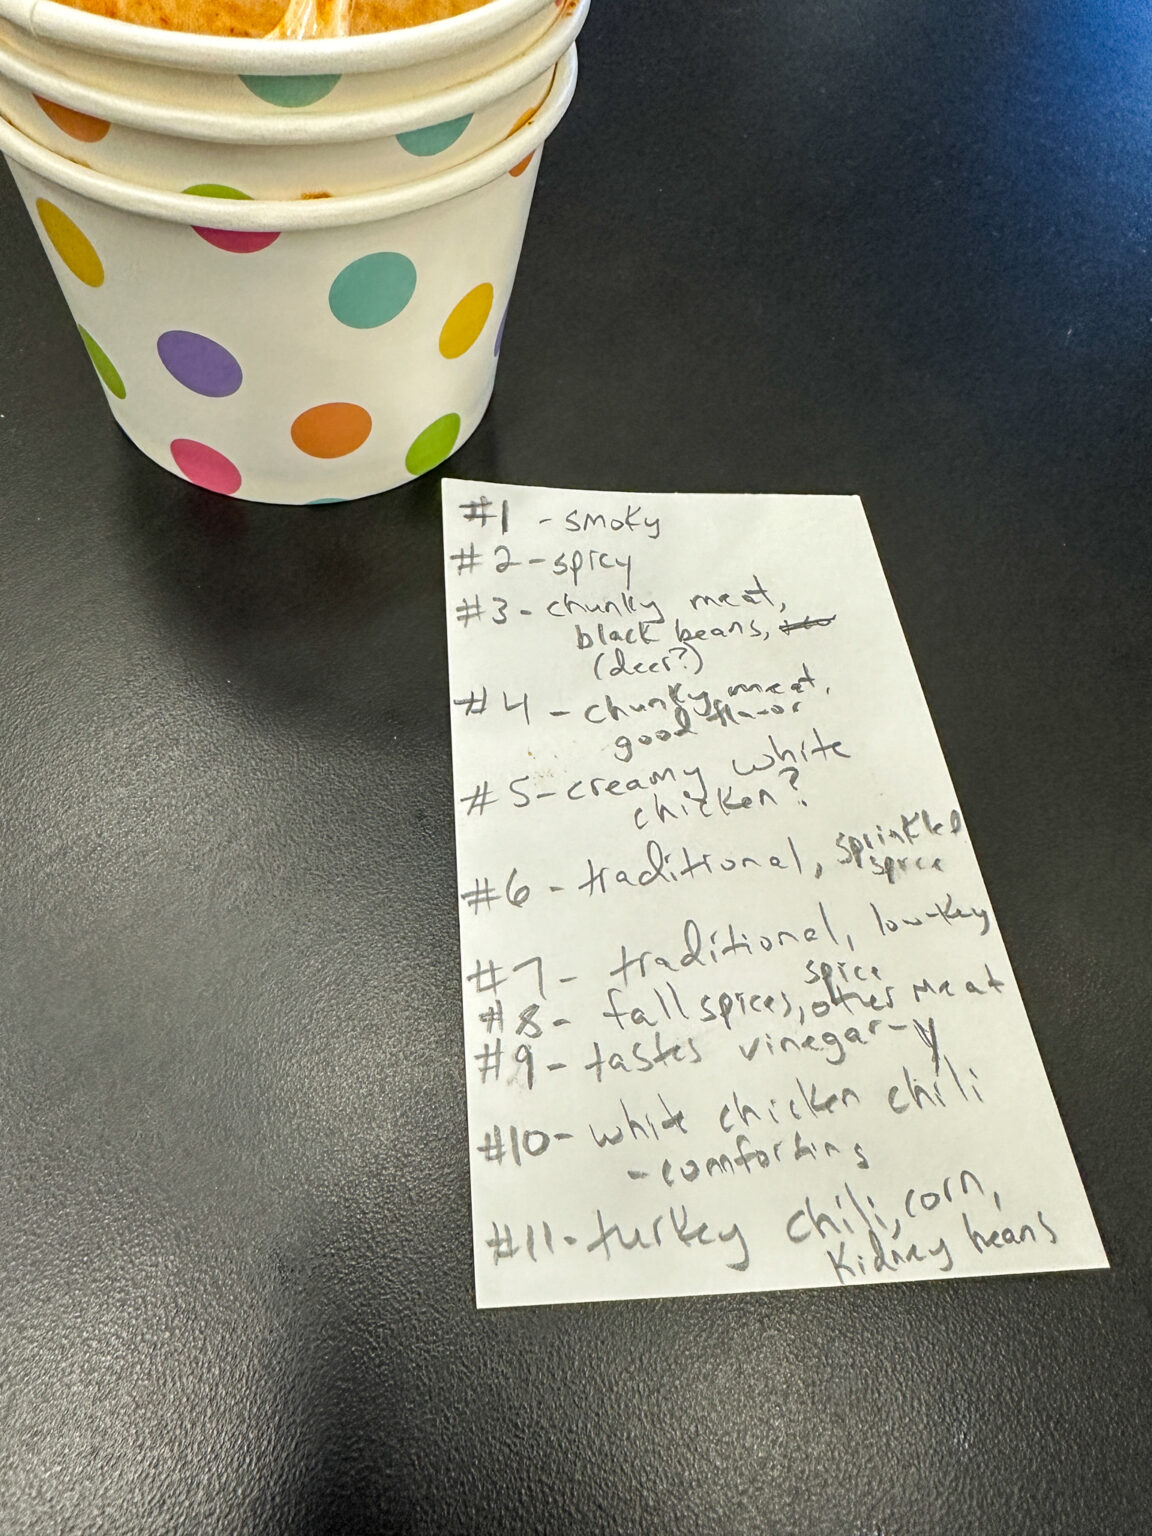 #1 - smoky
#2 - spicy
#3 - chunky meat,
black beans,
(deer?)
#4 - chunky meat,
good flavor
#5 - creamy white
chicken?
#6 - traditional, sprinkled
spice
#7 - traditional, low-key
spice
#8 - fall spices, other meat
#9 - tastes vinegar-y
#10 - white chicken chili
- comforting
#11 - turkey chili, corn,
kidney beans